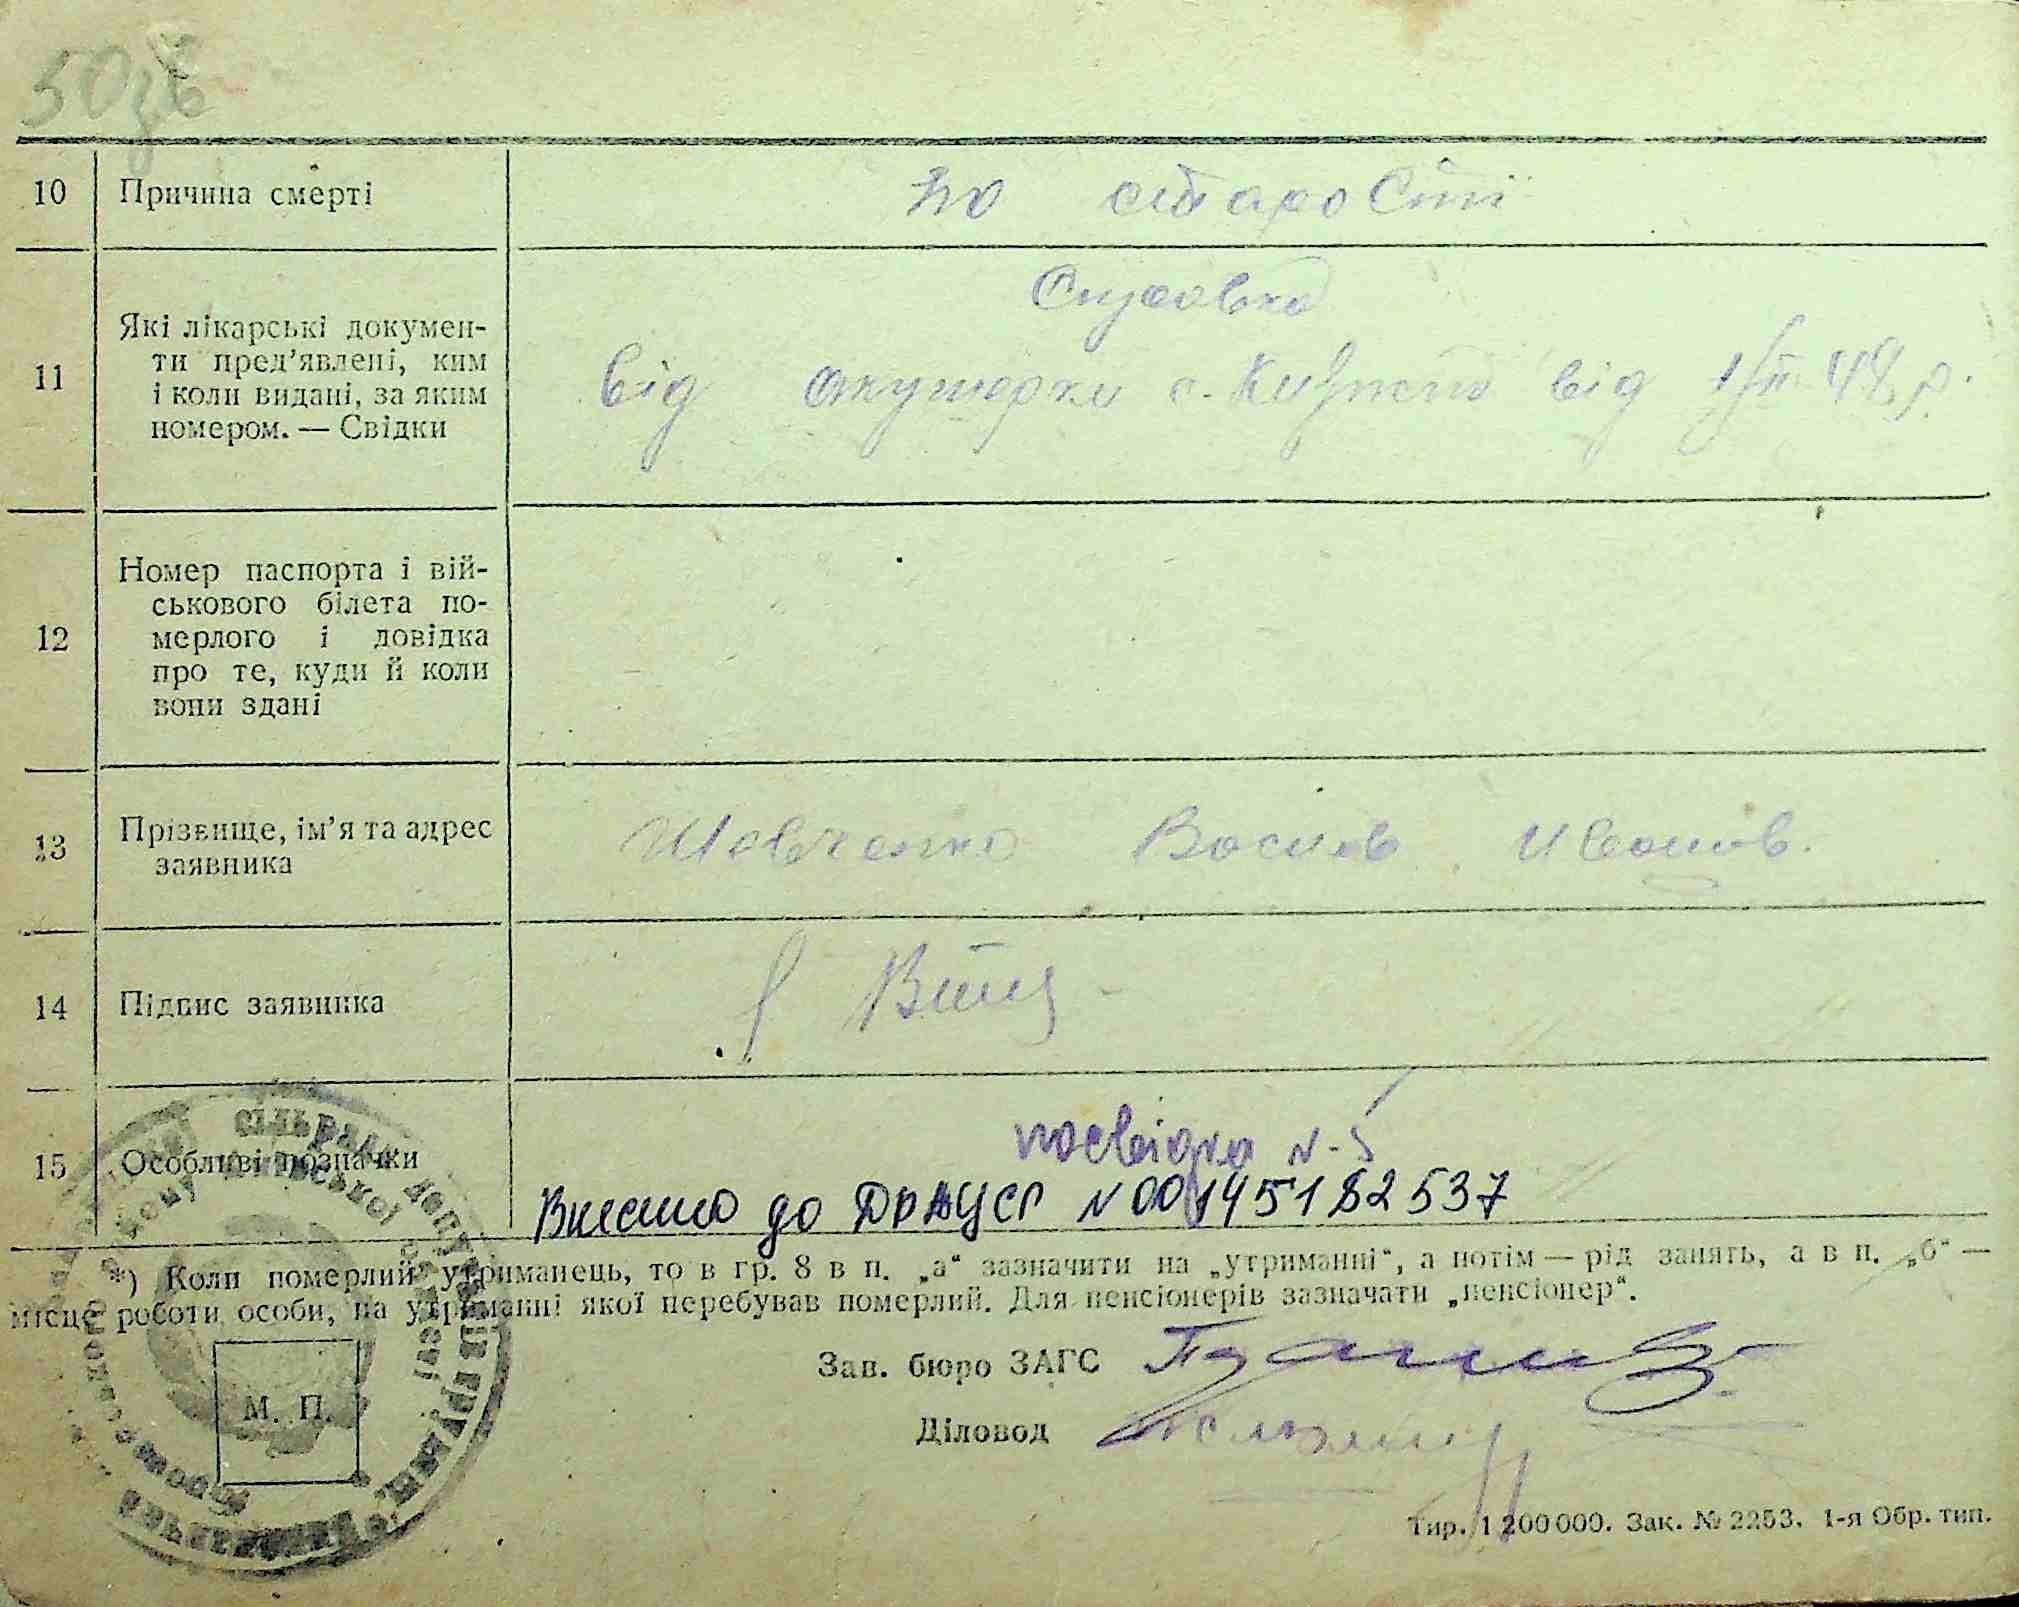 50зв
10 Причина смерті по старості
11 Які лікарські докумен-
ти пред’явлені, ким
і коли видані, за яким
номером. — Свідки
Справка
від акушерки с. від 1/ІІ 48 р.
12 Номер паспорта і вій-
ськового білета по-
мерлого і довідка
про те, куди й коли
вони здані
13 Прізвище, ім’я та адрес
заявника
Шевченко Васил Иванов.
14 Підпис заявника
15 Особливі позначки
посвідка N-5
Внесено до ДРАЦСГ N 00145182537
*) Коли померлий утриманець, то в гр. 8 в п. „а“ зазначити на „утриманні“, а потім — рід занять, а в п. „б“ —
місце роботи особи, на утриманні якої перебував померлий. Для пенсіонерів зазначати „пенсіонер“.
Зав. бюро ЗАГС
Діловод
М. П.
сільрада депутатів трудящ.
Київської
Тир. 1 200 000. Зак. № 2253. 1-я Обр. тип.